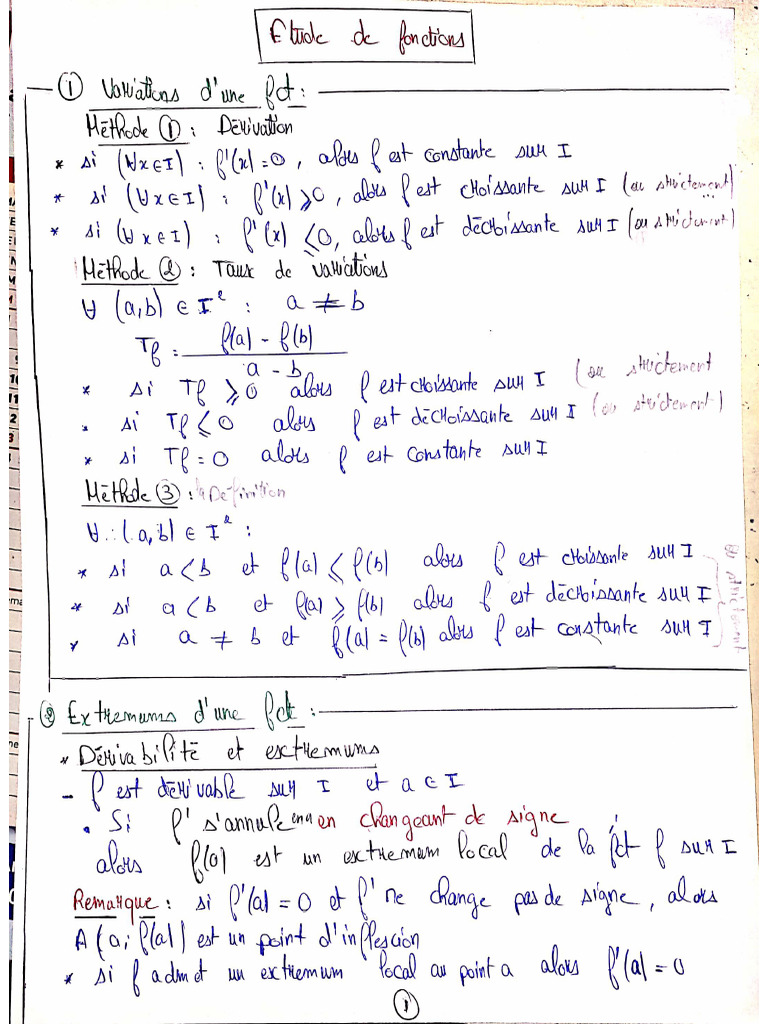 Etude de fonctions
① Variations d'une fct :
Méthode ① : Dérivation
* si (∀x∈I) : f'(x) = 0, alors f est constante sur I
* si (∀x∈I) : f'(x) ⩾ 0, alors f est croissante sur I (ou strictement)
* si (∀x∈I) : f'(x) ⩽ 0, alors f est décroissante sur I (ou strictement)
Méthode ② : Taux de variations
∀ (a,b) ∈ I² : a ≠ b
Tf = f(a) - f(b) / a - b
* si Tf ⩾ 0 alors f est croissante sur I (ou strictement
. si Tf ⩽ 0 alors f est décroissante sur I (ou strictement)
* si Tf = 0 alors f est constante sur I
Méthode ③ : la Définition
∀ (a,b) ∈ I² :
* si a < b et f(a) ⩽ f(b) alors f est croissante sur I
* si a < b et f(a) ⩾ f(b) alors f est décroissante sur I
* si a ≠ b et f(a) = f(b) alors f est constante sur I
strictement
② Extremums d'une fct :
* Dérivabilité et extremums
- f est dérivable sur I et a ∈ I
• Si f' s'annule en a en changeant de signe
alors f(a) est un extremum local de la fct f sur I
Remarque : si f'(a) = 0 et f' ne change pas de signe, alors
A(a; f(a)) est un point d'inflescion
* si f admet un extremum local au point a alors f'(a) = 0
①